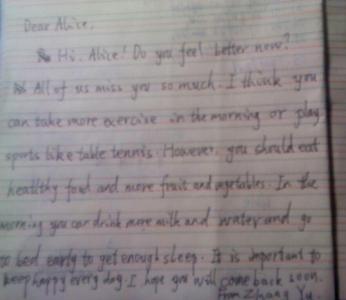 Dear Alice,
Hi, Alice! Do you feel better now?
All of us miss you so much. I think you
can take more exercise in the morning or play
sports like table tennis. However, you should eat
healthy food and more fruit and vegetables. In the
morning you can drink more milk and water and go
to bed early to get enough sleep. It is important to
keep happy every day. I hope you will come back soon.
From Zhang Yu